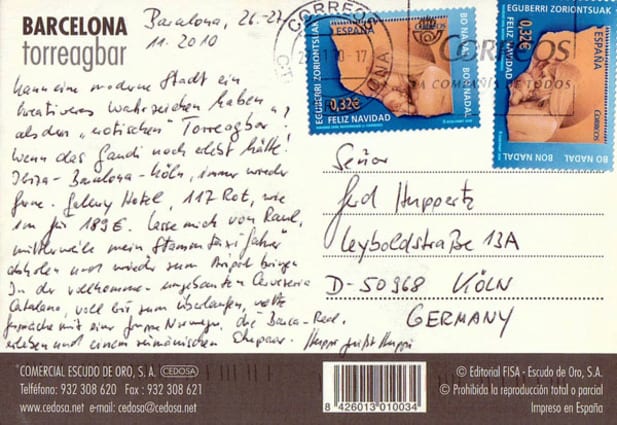 BARCELONA
torreagbar
Barcelona, 26.-27.
11.2010
Kann eine moderne Stadt ein
kreativeres Wahrzeichen haben,
als den „erotischen" Torreagbar,
wenn das Gaudi noch erlebt hätte!
Ibiza-Barcelona-Köln, immer wieder
gerne. Gallery Hotel, 117 Rot, wie
im für 189€. Lasse mich von Raul,
mittlerweile mein Stammtaxifahrer
abholen und wieder zum Airport bringen
In der vollkommen umgebauten Cerveceria
Catalana, voll bis zum Überlaufen, nette
Gespräche mit einer Gruppe Norweger, die Barca-Real
erleben und einem rumänischen Ehepaar. Huppi grüßt Huppi
CORREOS
BARCELONA
EGUBERRI ZORIONTSUAK
ESPAÑA
BO NADAL
BON NADAL
0,32€
FELIZ NAVIDAD
Correos
EGUBERRI ZORIONTSUAK
FELIZ NAVIDAD
0,32€
ESPAÑA
Correos
BO NADAL
BON NADAL
Señor
Huppertz
Leyboldstraße 13A
D-50968 KÖLN
GERMANY
COMERCIAL ESCUDO DE ORO, S.A. CEDOSA
Telféfono: 932 308 620 Fax: 932 308 621
www.cedosa.net e-mail: cedosa@cedosa.net
8 426013 010034
© Editorial FISA - Escudo de Oro, S.A.
© Prohibida la reproducción total o parcial
Impreso en España